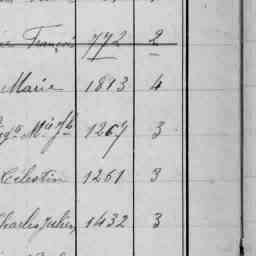 François 772 2
Marie 1813 4
Mie Jh 1267 3
Célestin 1261 3
Charles Julien 1432 3